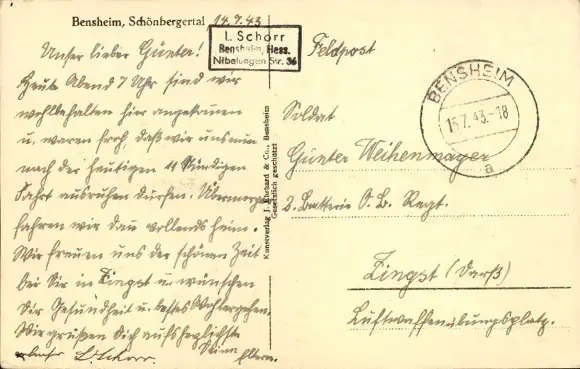 Bensheim, Schönbergertal 14.7.43
I. Schorr
Bensheim, Hess.
Nibelungen Str. 36
Unser lieber Günter!
Heute Abend 7 Uhr sind wir
wohlbehalten hier angekommen
u. waren froh, daß wir uns nun
nach der heutigen 11 stündigen
Fahrt ausruhen durften. Übermorgen
fahren wir dann vollends heim.
Wir freuen uns der schönen Zeit
bei Dir in Zingst u. wünschen
Dir Gesundheit u. bestes Wohlergehen.
Wir grüßen Dich aufs herzlichste
L. Schorr. Deine Eltern.
Kunstverlag J. Ehrhard & Co., Bensheim
Gesetzlich geschützt
Feldpost
BENSHEIM
15.7.43.-18
a
Soldat
Günter Weihenmayer
2. Batterie O. B. Regt.
Zingst (Darß)
Luftwaffenübungsplatz.